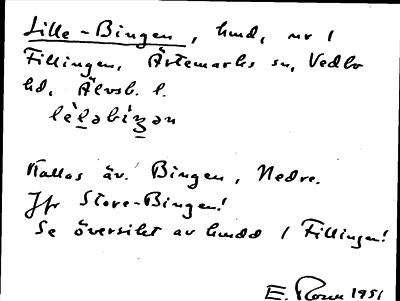 Lille-Bingen, hmd, nr 1
Fillingen, Ärtemarks sn, Vedbo
hd, Älvsb. l.
lèl̠əbíŋ̠ən
Kallas äv. Bingen, Nedre.
Jfr Store-Bingen!
Se översikt av hmdd / Fillingen!
E. 1951